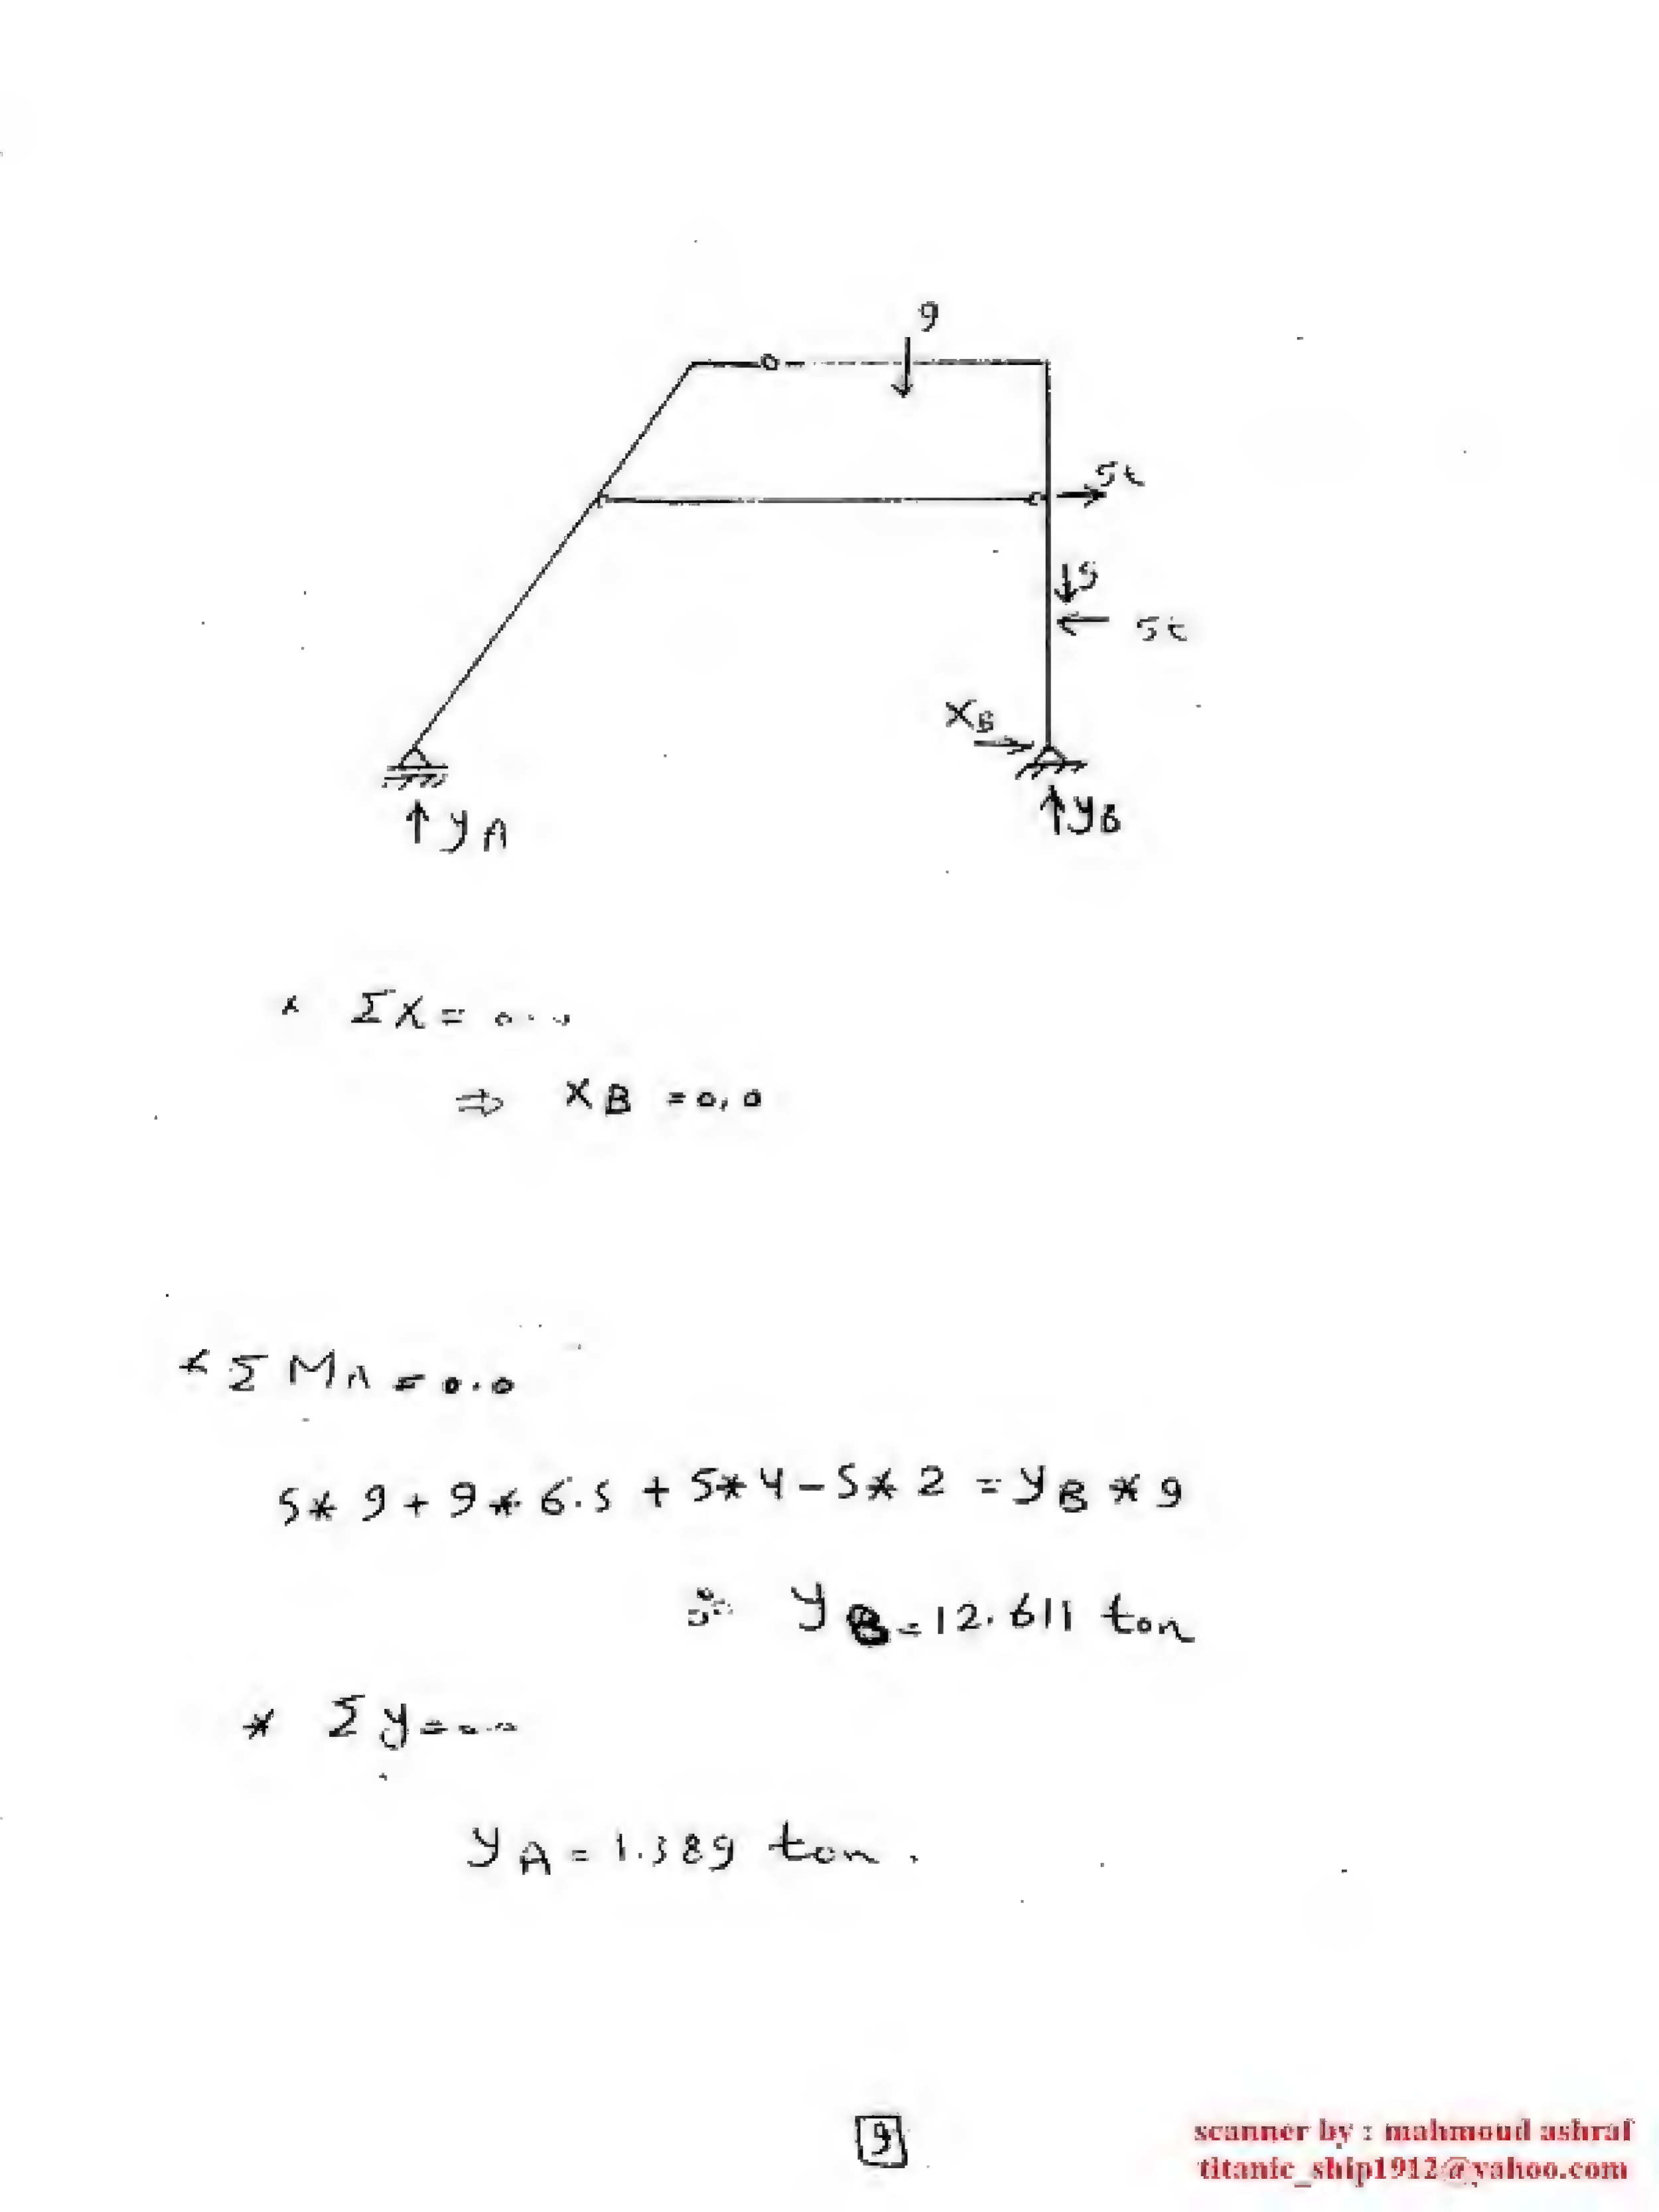 9
5t
↓5
← 5t
XB
↑ yA
↑ yB
* ΣX = 0.0
⇒ XB = 0.0
* Σ MA = 0.0
5* 9 + 9 * 6.5 + 5*4 - 5* 2 = yB * 9
∴ yB = 12.611 ton
* Σ y = 0.0
yA = 1.389 ton .
9
scanner by : mahmoud ashraf
titanic_ship1912@yahoo.com